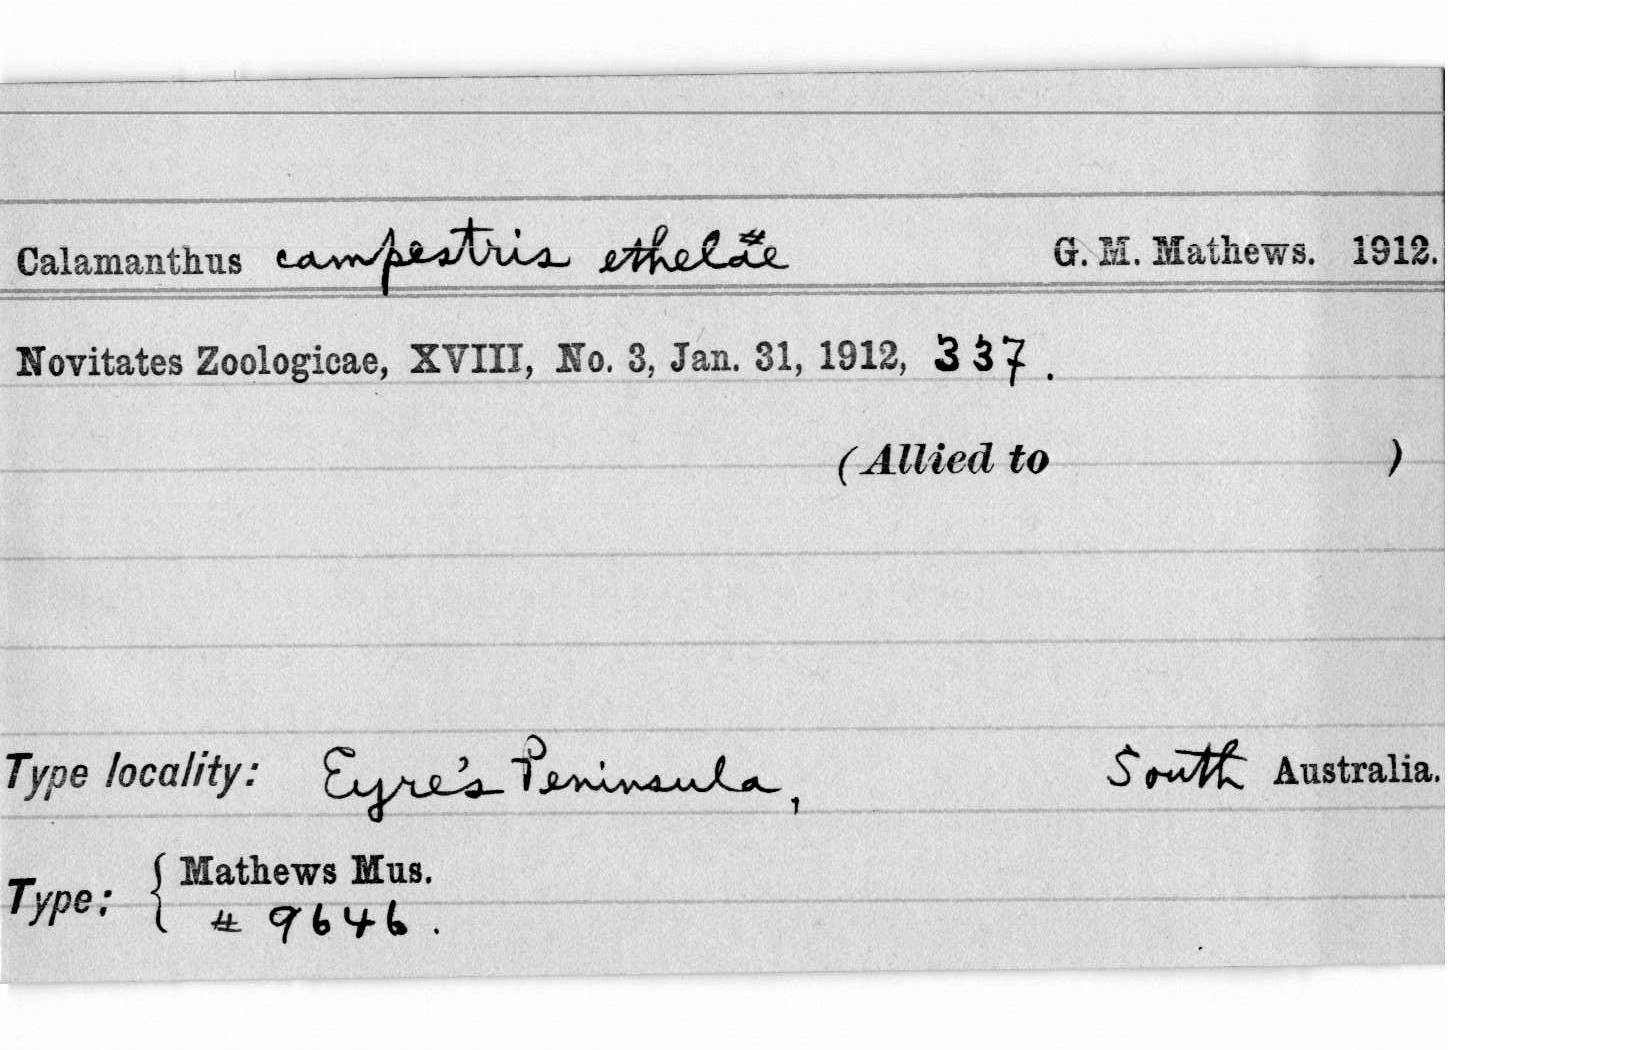 Calamanthus campestris ethelae # G. M. Mathews. 1912.
Novitates Zoologicae, XVIII, No. 3, Jan. 31, 1912, 337.
(Allied to )
Type locality: Eyre's Peninsula, South Australia.
Type: { Mathews Mus.
# 9646.